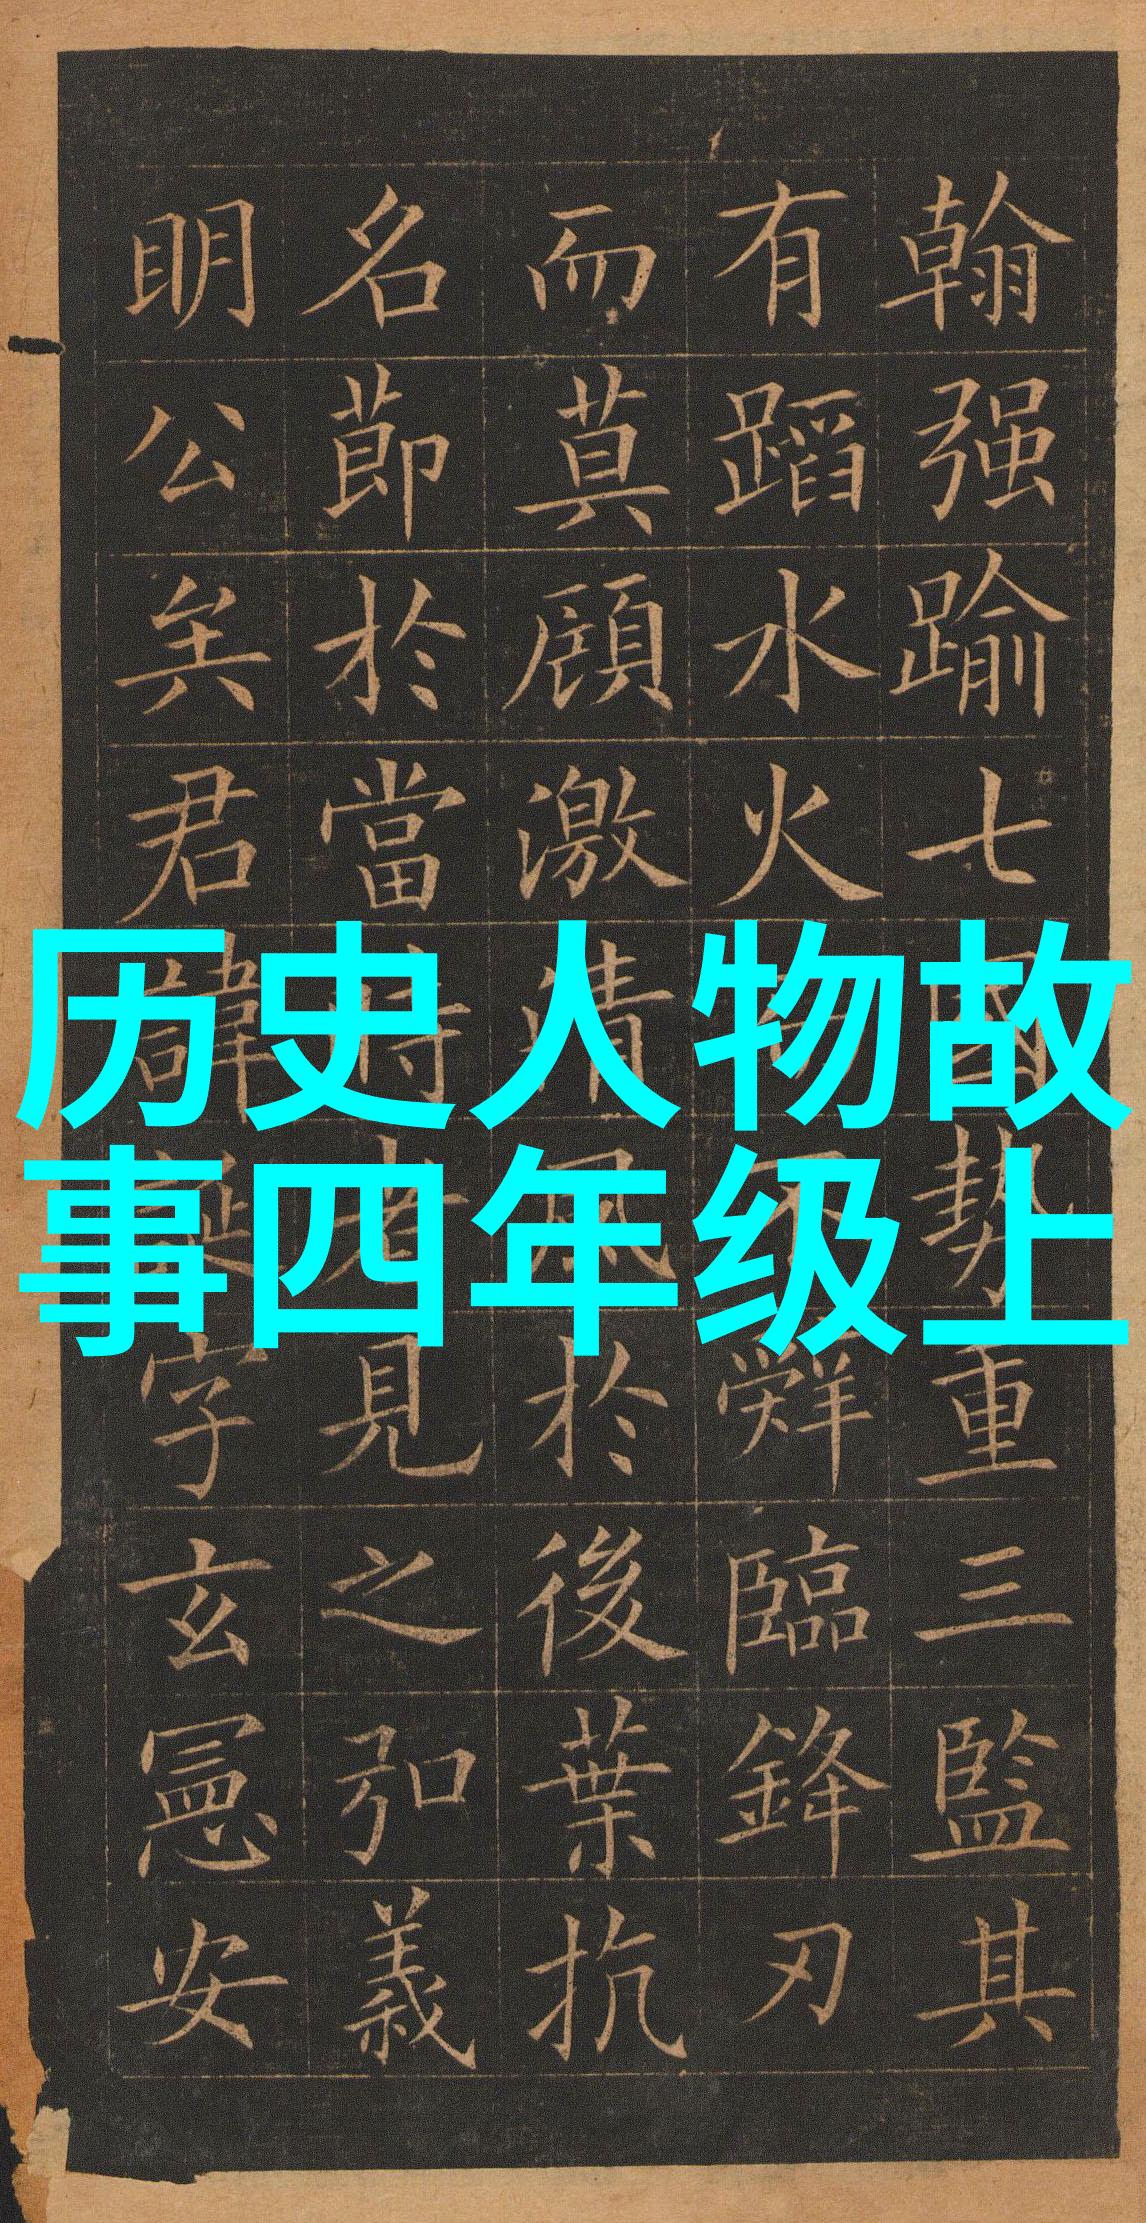 历史人物故
事四年级上
翰强踰七國勢重三監其
有蹈水火而不辤臨鋒刃
而莫顧激清風於後葉抗
名節於當時者見之弘義
明公矣君諱誕字玄憲安